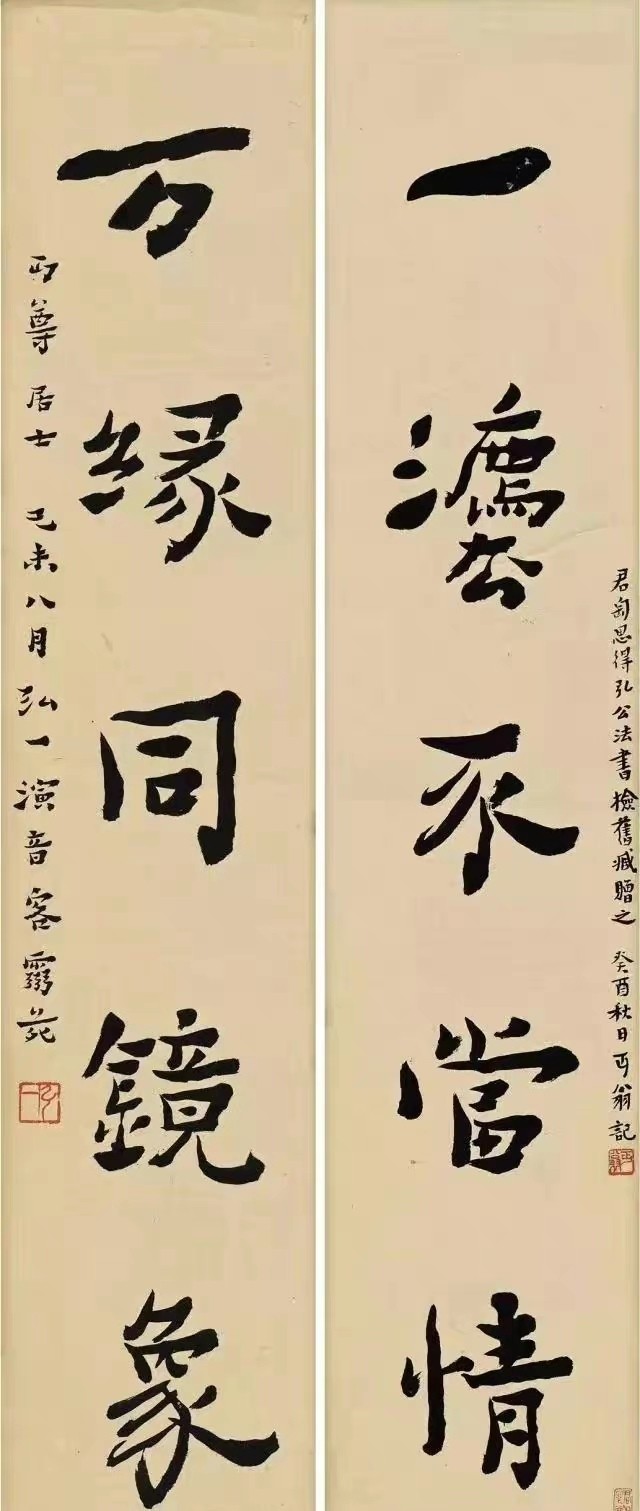 一灋不當情
君匋思得弘公法書檢舊臧贈之 癸酉秋日丏翁記
万緣同鏡象
丏尊居士 己未八月弘一演音客靈苑